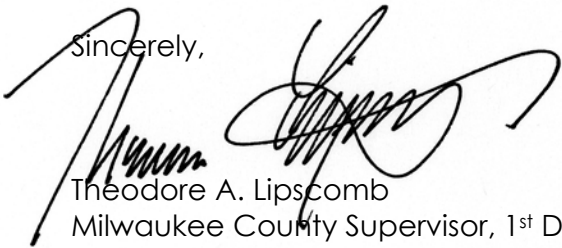 Sincerely,
Theodore A. Lipscomb
Milwaukee County Supervisor, 1st D